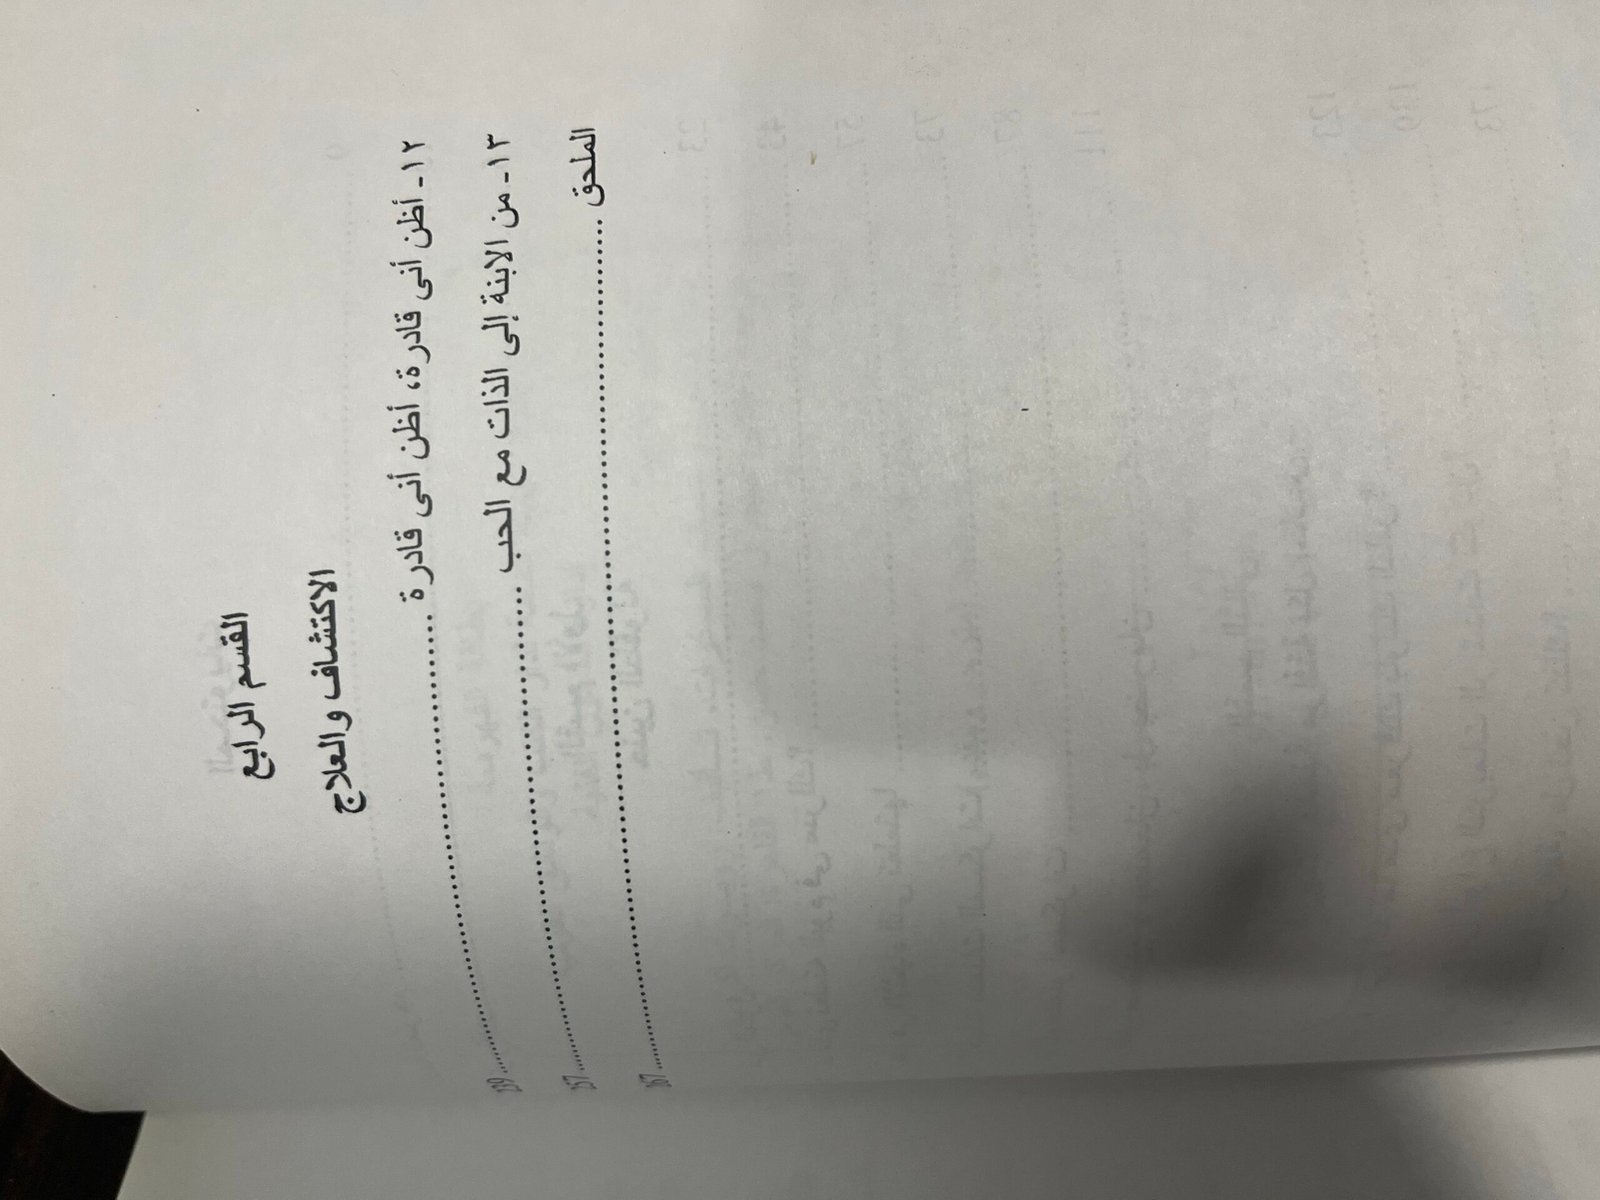 القسم الرابع
الاكتشاف والعلاج
١٢- أظن أنى قادرة، أظن أنى قادرة ..............................
١٣- من الابنة إلى الذات مع الحب .............................. 157
الملحق .............................. 167